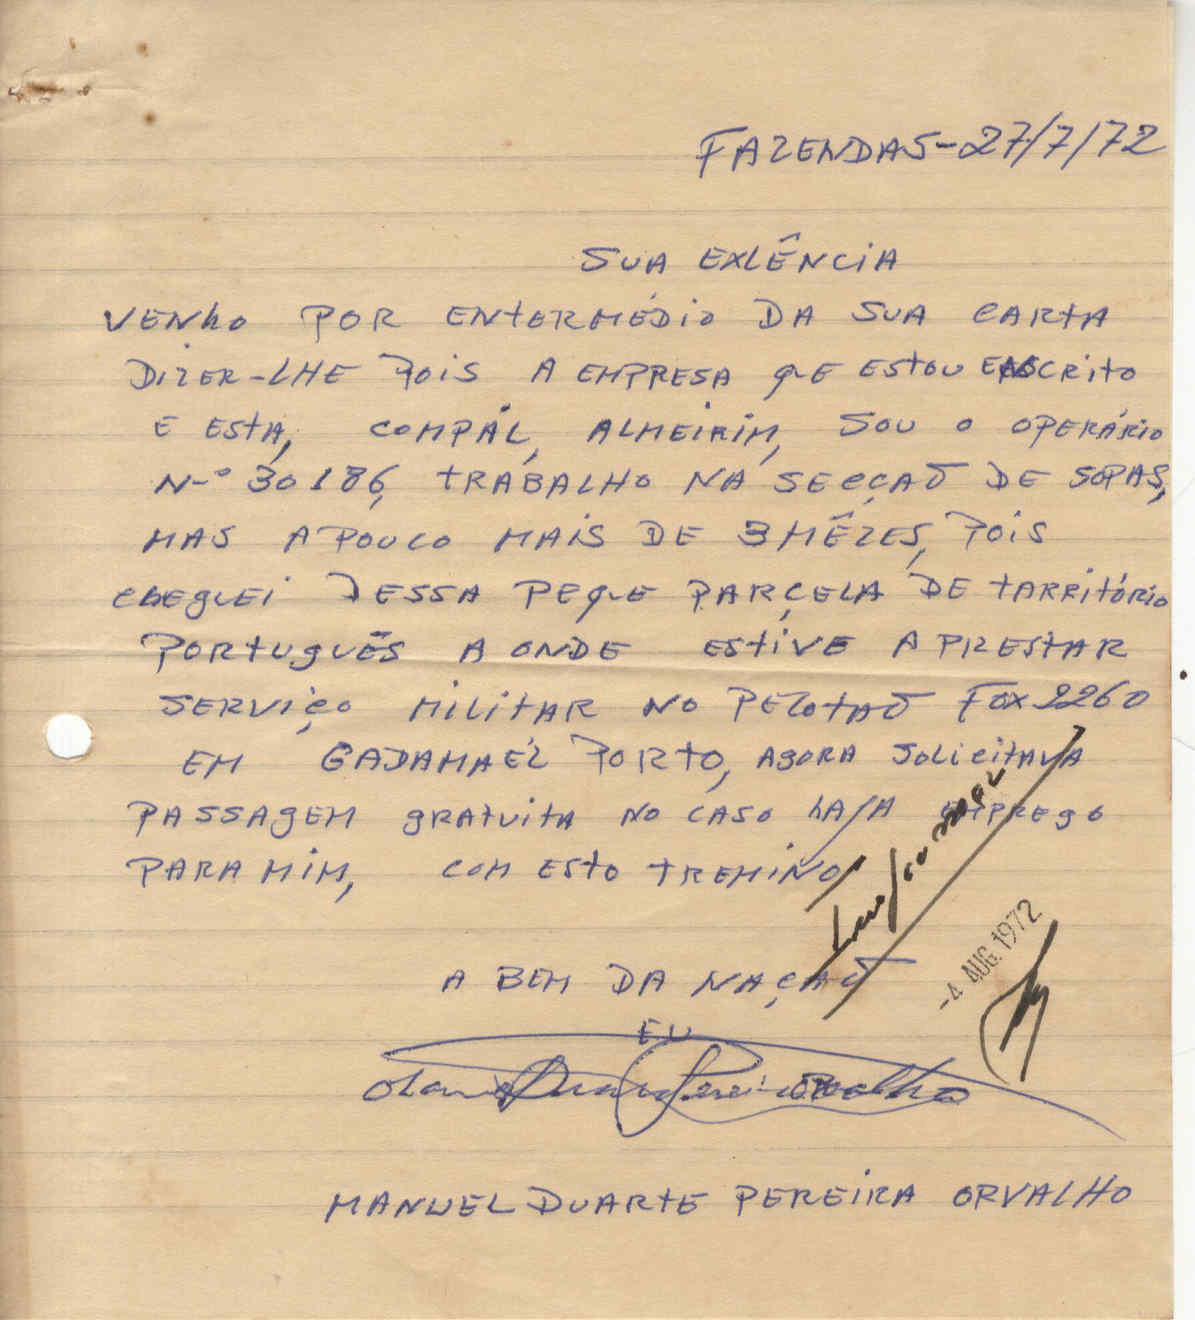 FAZENDAS-27/7/72
SUA EXLÊNCIA
VENHO POR ENTERMÉDIO DA SUA CARTA
DIZER-LHE POIS A EMPRESA QUE ESTOU ENSCRITO
E ESTA, COMPÁL, ALMEIRIM, SOU O OPERÁRIO
N-º 30186, TRABALHO NA SECÇAÕ DE SOPAS,
MAS APOUCO MAIS DE 3 MÊZES, POIS
CHEGUEI DESSA PEQUE PARÇELA DE TARRITÓRIO
PORTUGUÊS A ONDE ESTIVE A PRESTAR
SERVIÇO MILITAR NO PELOTAÕ FOX 2260
EM GADAMAÉL PORTO, AGORA SOLICITAVA
PASSAGEM GRATUITA NO CASO HAJA EMPREGO
PARA MIM, COM ESTO TREMINO
A BEM DA NAÇAÕ
EU
-4 AUG. 1972
MANUEL DUARTE PEREIRA ORVALHO